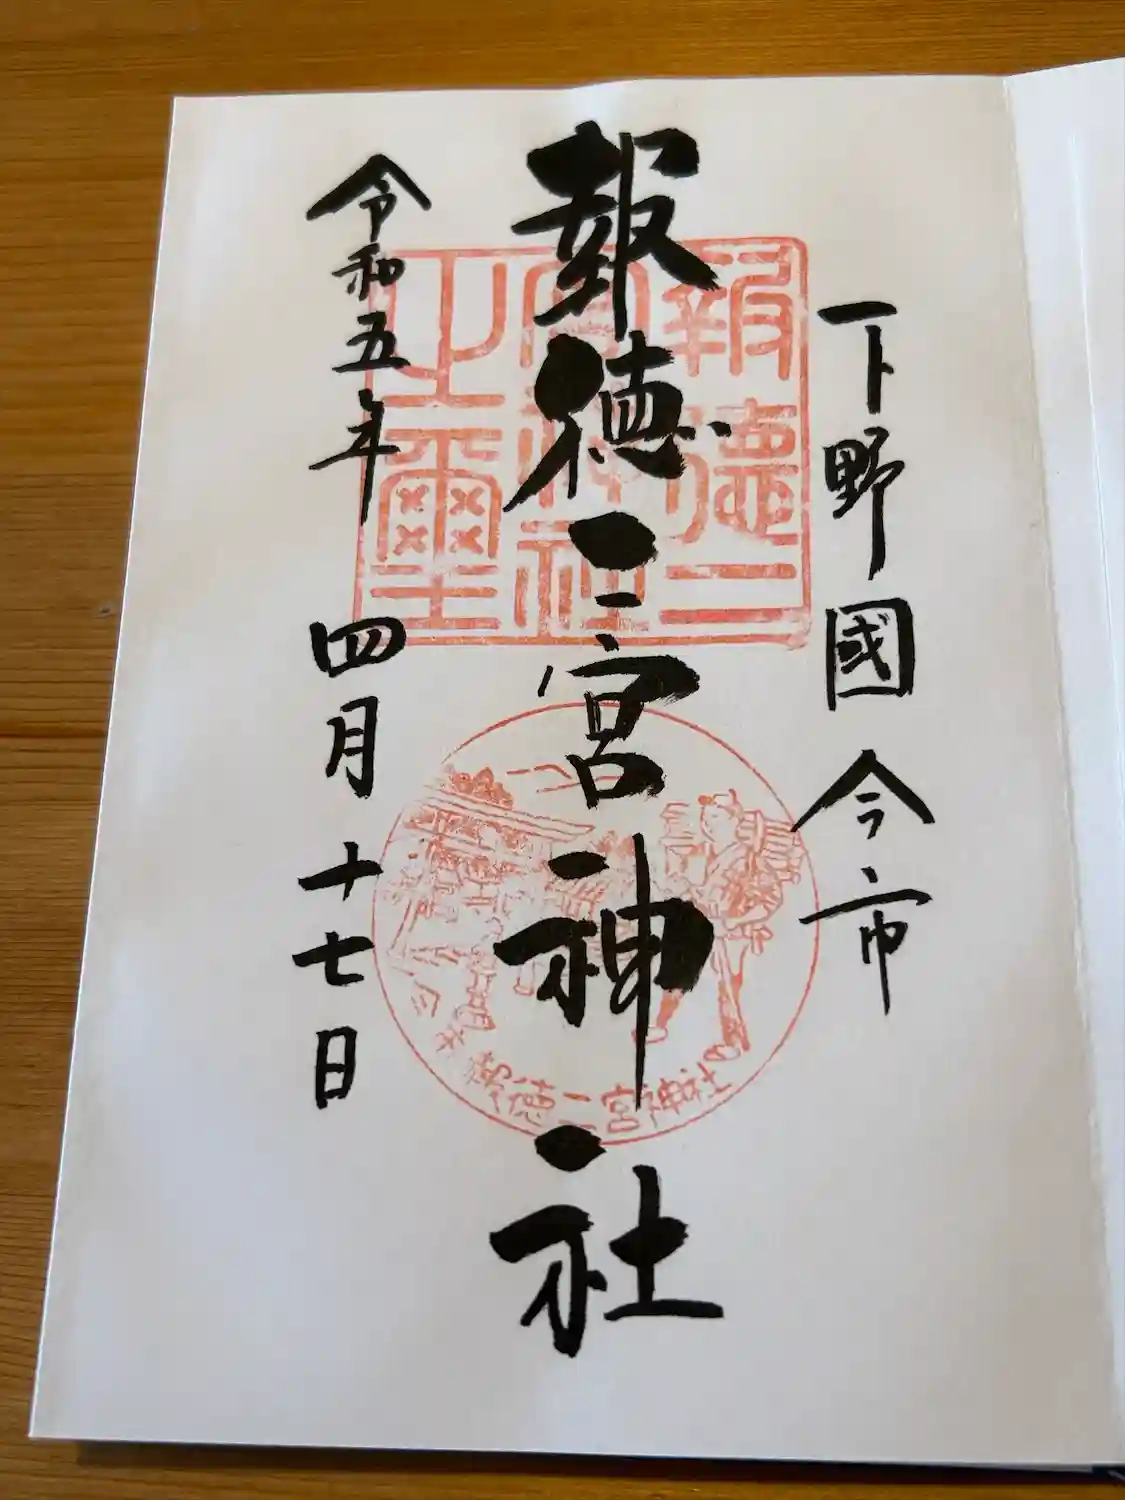 下野國今市
報徳二宮神社
令和五年四月十七日
報徳二
宮神社
之璽
報徳二宮神社